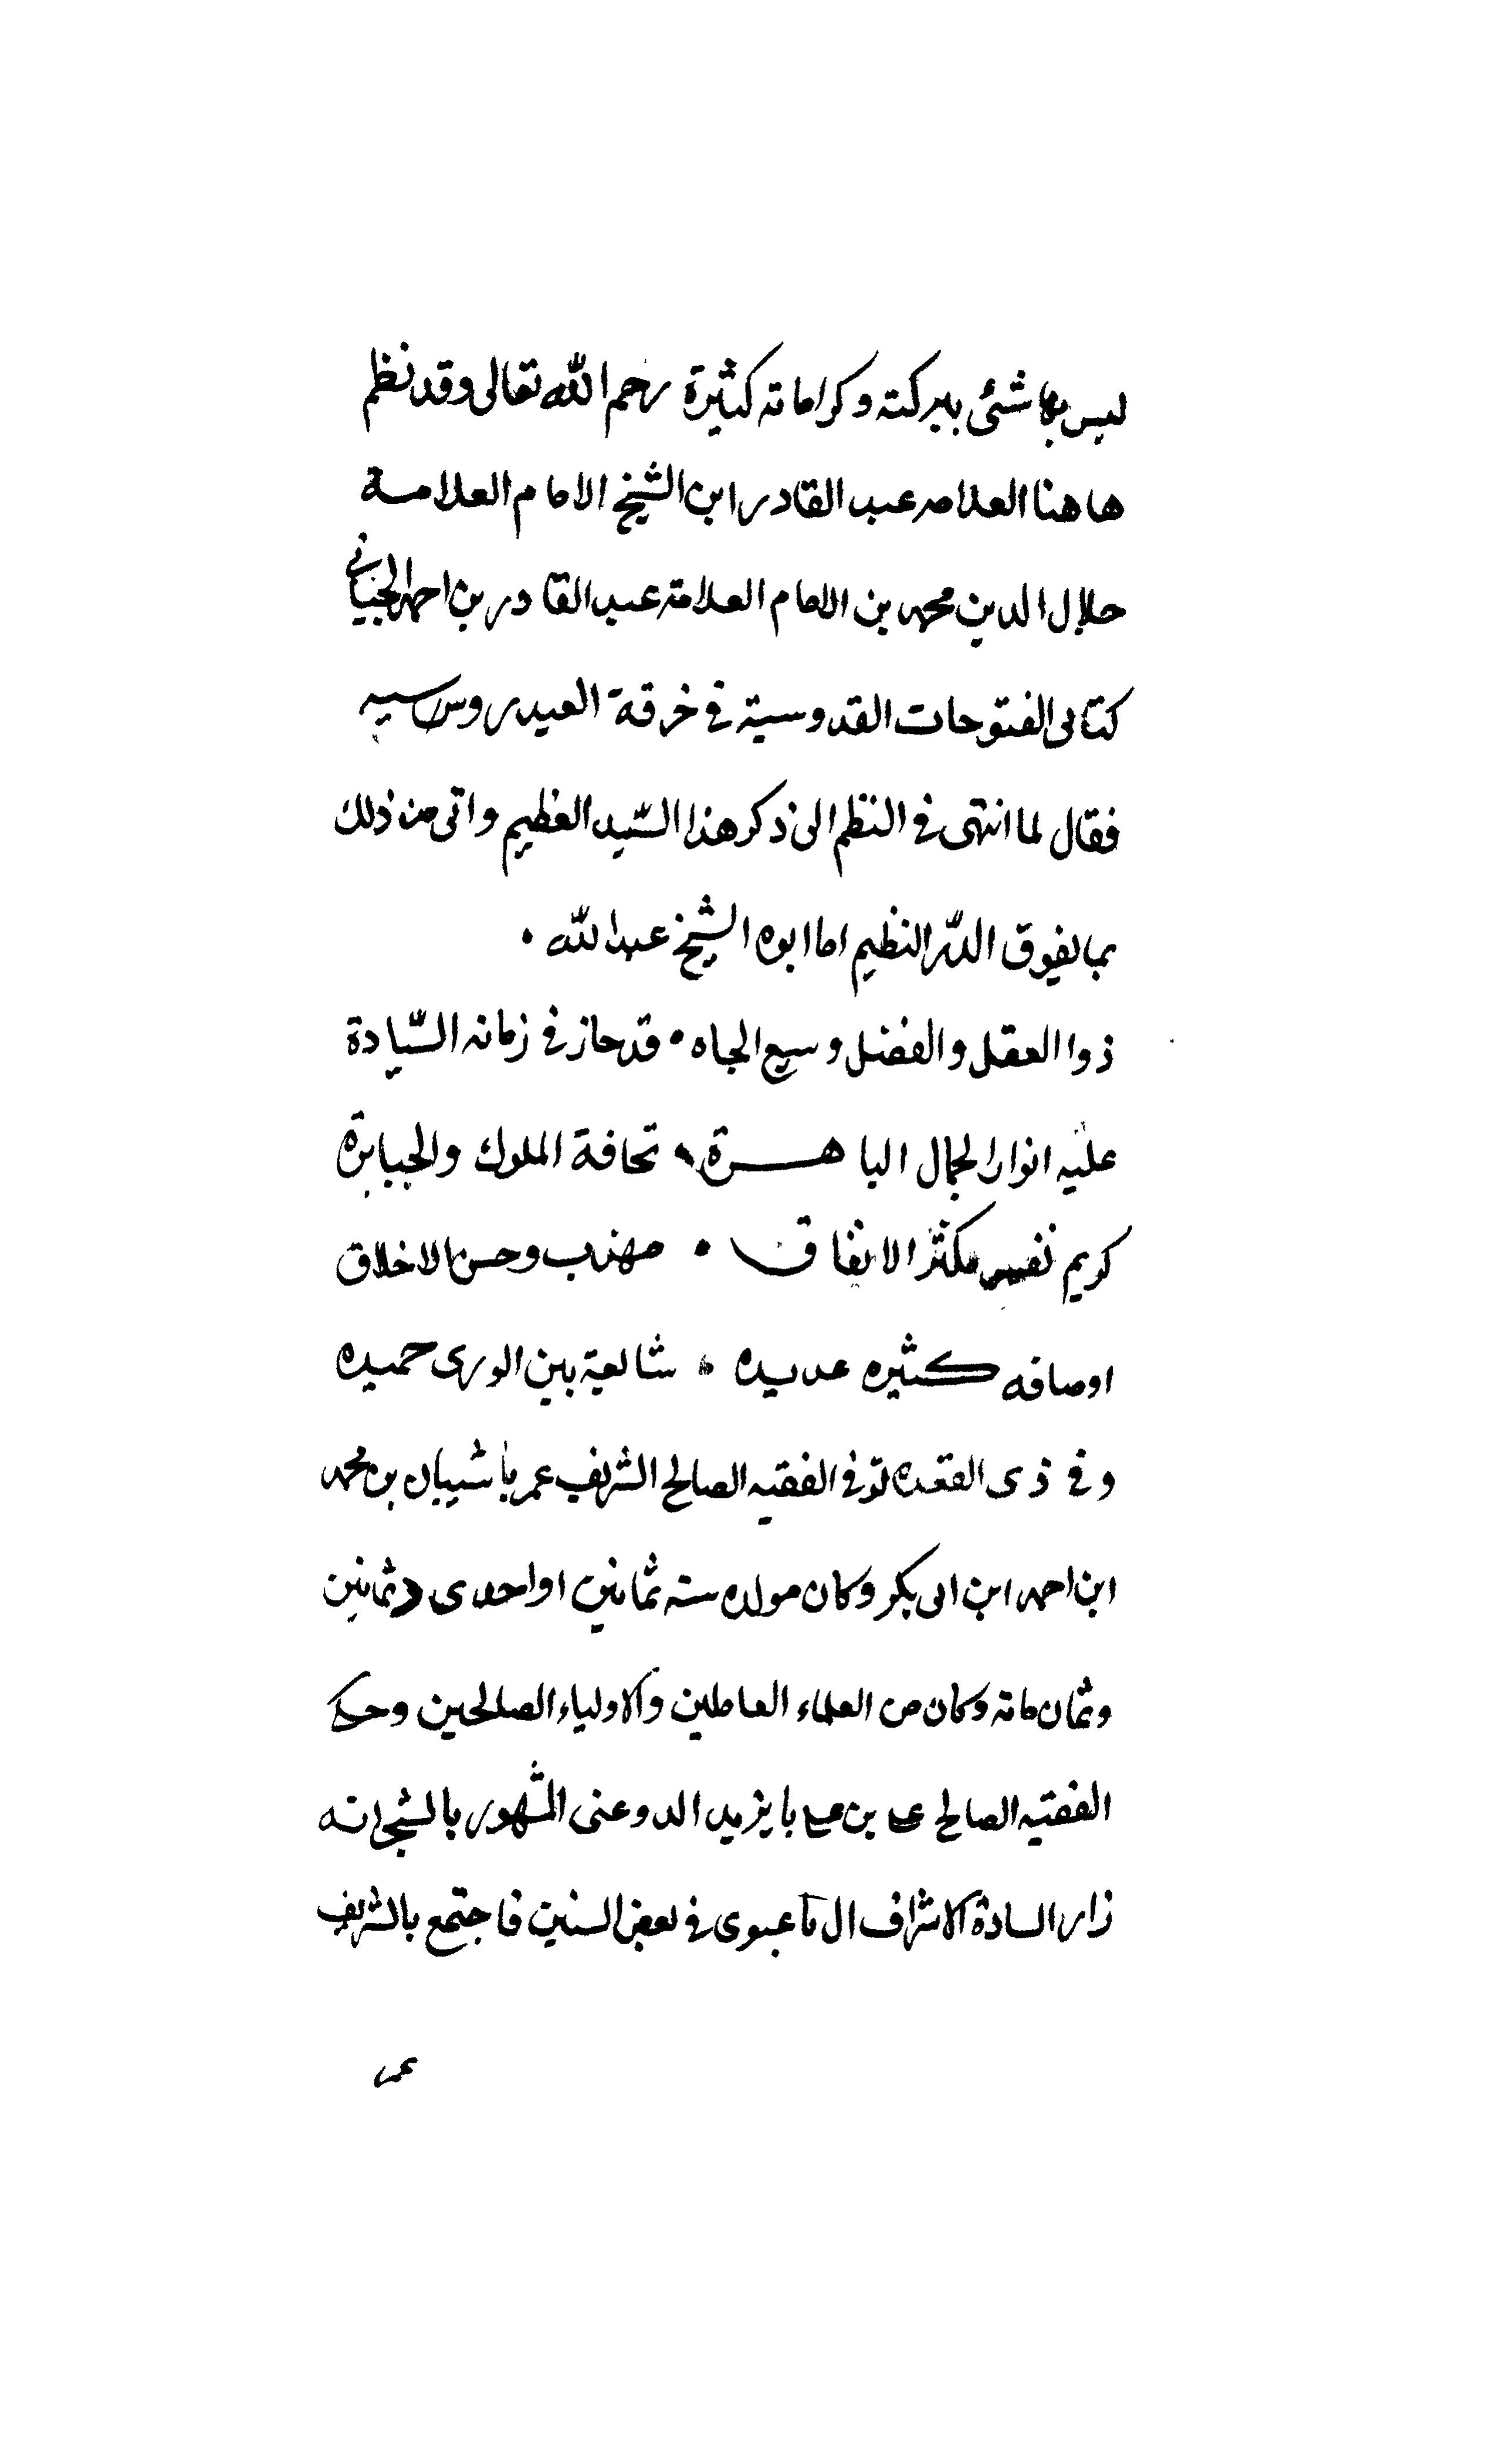 ليس بها شئ ببركته وكراماته كثيرة رحم الله تعالى وقد نظم
هاهنا العلامه عبد القادر ابن الشيخ الامام العلامة
جلال الدين محمد بن الامام العلامة عبد القادر بن احمد الحبانى
كتابى الفتوحات القدوسية في خرقة العيدروسيه
فقال لما انتهى في النظم الى ذكر هذا السّيد العظيم واتى من ذلك
بما يفوق الدّر النظيم اما ابوه الشيخ عبد الله •
ذوا العقل والفضل وسيع الجاه • قد حاز في زمانه السّيادة
عليه انوار الجمال الباهرة • تخافة الملوك والجبابرة
كريم نفس مكثر الانفاق • مهذب وحسن الاخلاق
اوصافه كثيره عديده • شائعة بين الورى حميده
وفي ذى القعده توفي الفقيه الصالح الشريف عمر باشيبان بن محمد
ابن احمد ابن ابى بكر وكان مولده سنه ثمانين او احدى وثمانين
وثمان مائة وكان من العلماء العاملين والاولياء الصالحين وحكى
الفقيه الصالح على بن على بايزيد الدوعنى المشهور بالشجر انه
زار السادة الاشراف ال باعلوى في بعض السنين فاجتمع بالشريف
عمر